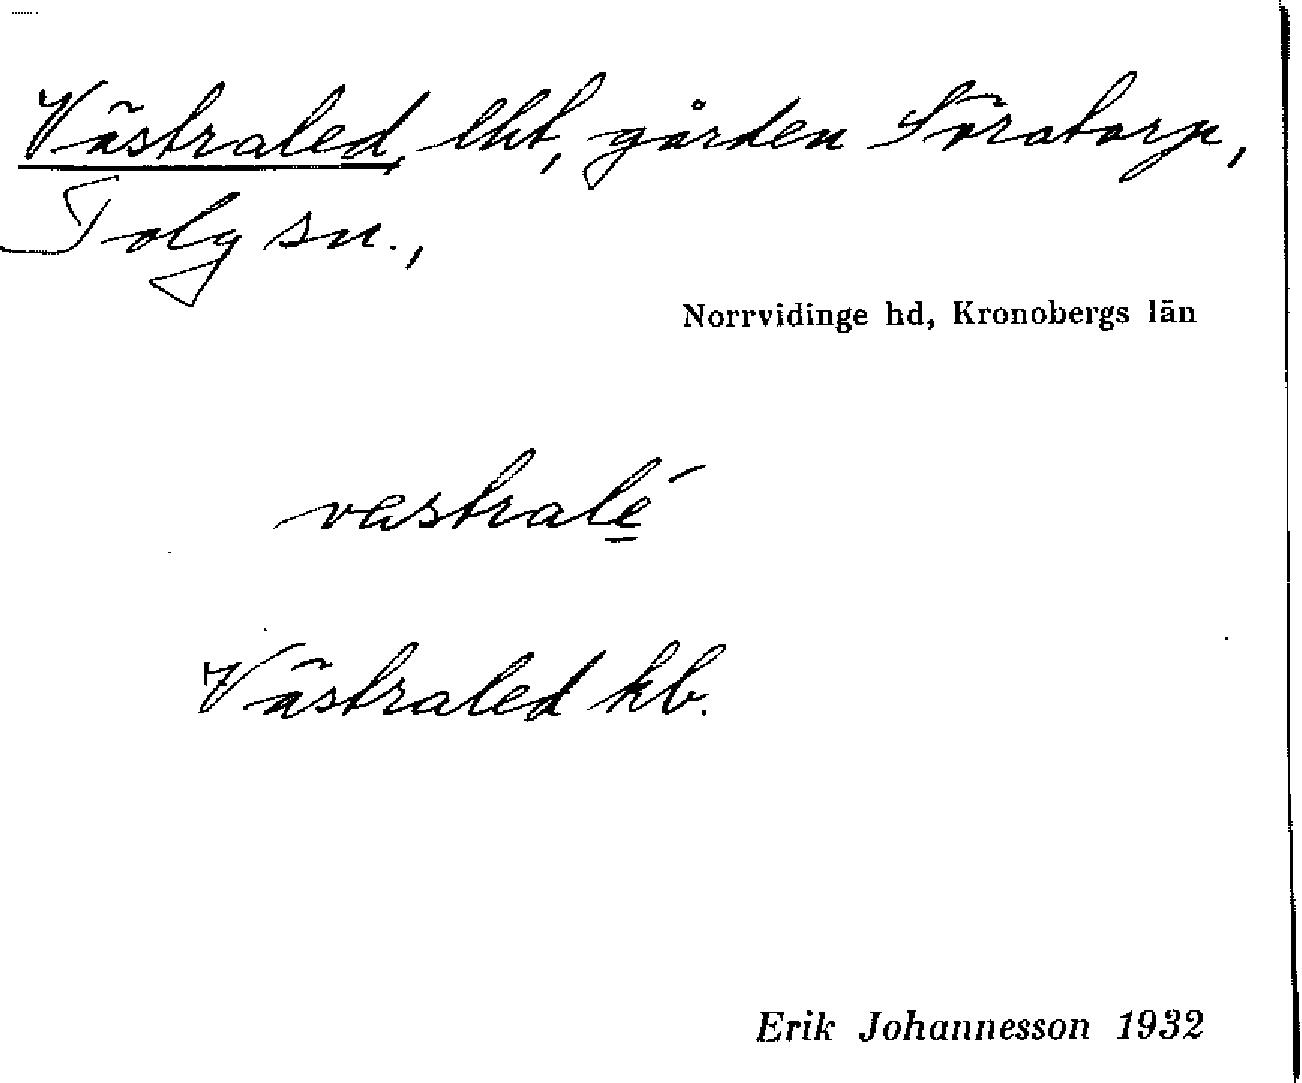 Västraled, lht, gården Söratorp,
Tolg sn.,
Norrvidinge hd, Kronobergs län
vastralé
Västraled kb.
Erik Johannesson 1932